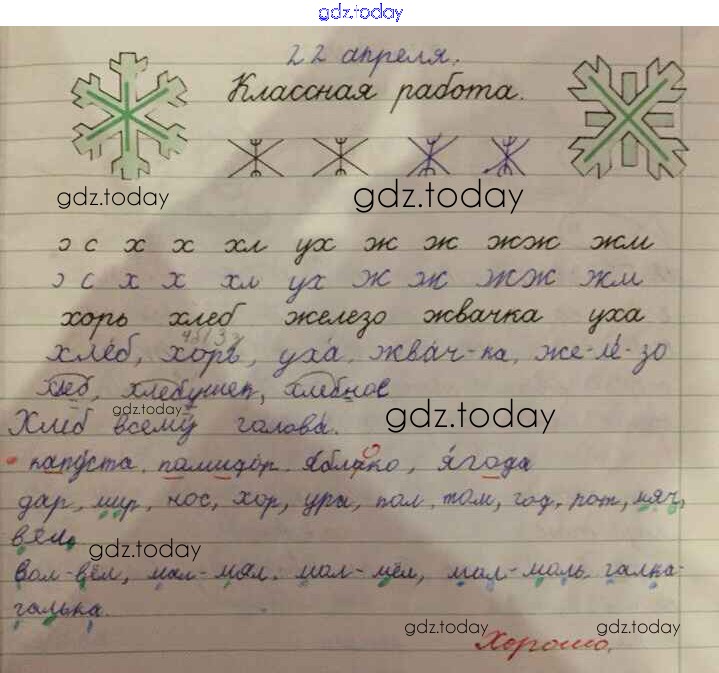 gdz.today
22 апреля.
Классная работа.
gdz.today gdz.today
э с х х хл ух ж ж жж жм
э с х х хл ух ж ж жж жм
хорь хлеб железо жвачка уха
хлеб, хорь, уха, жвач-ка, же-ле-зо
хлеб, хлебушек, хлебное
gdz.today gdz.today
Хлеб всему голова.
капуста, помидор, яблоко, ягода
дар, мир, нос, хор, ура, пол, том, год, рот, мяч,
gdz.today
вол-вёл, мал-мял, мол-мёл, мол-моль, галка-
галька.
gdz.today gdz.today
Хорошо.